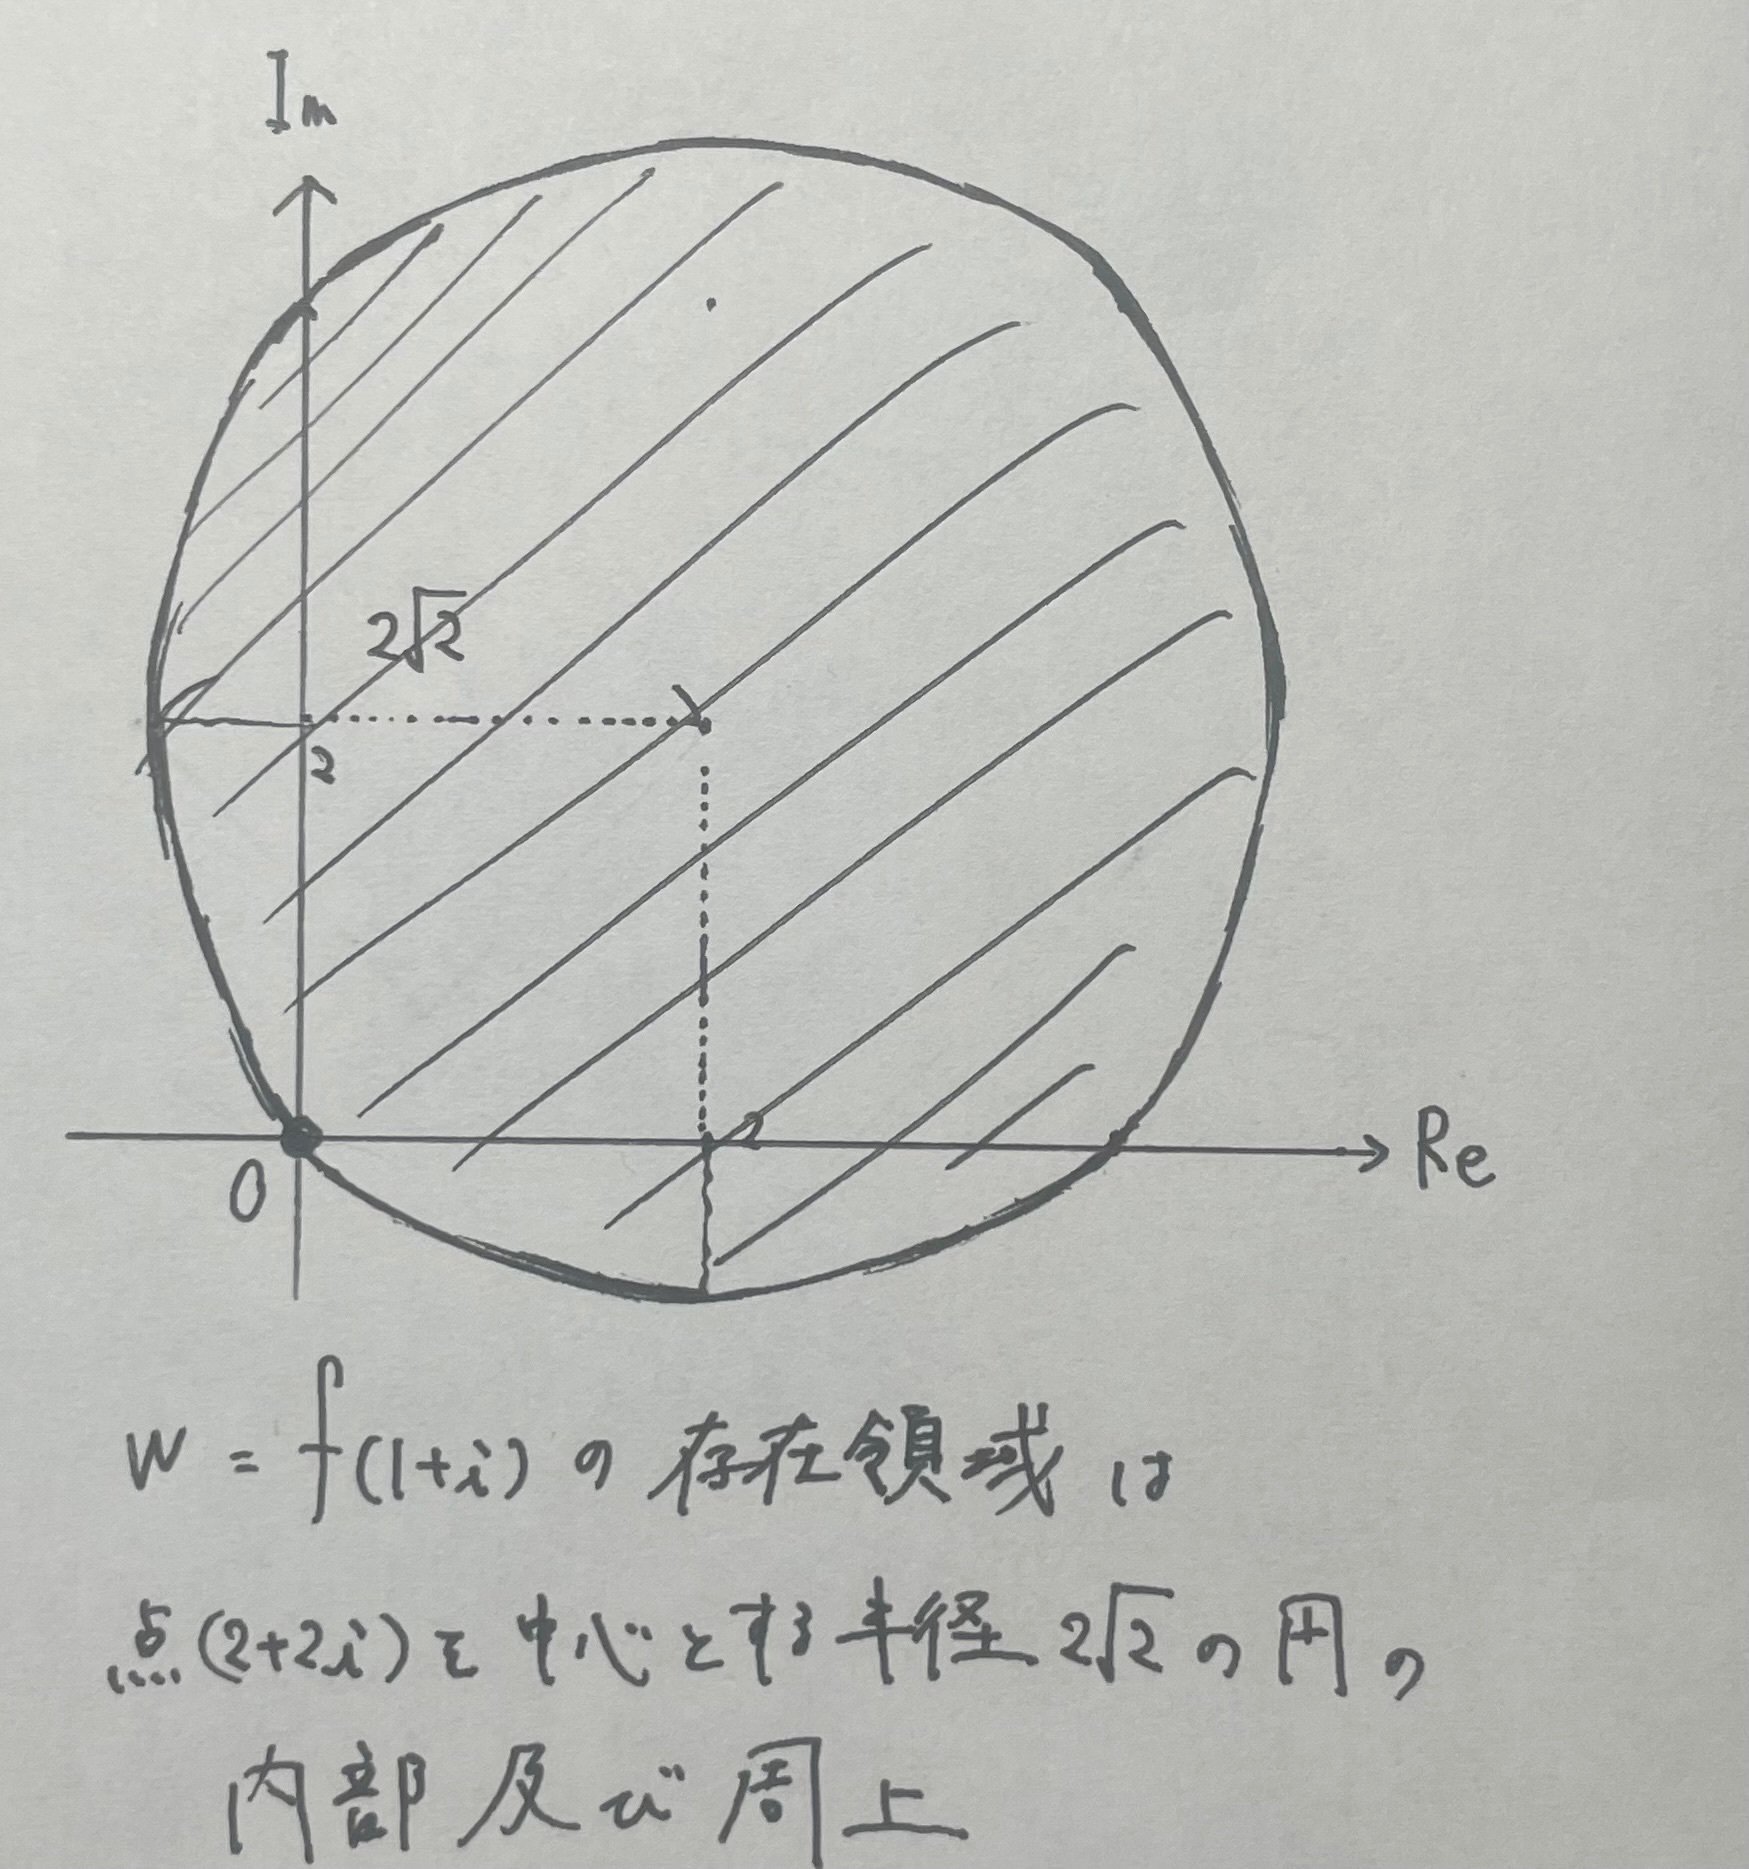 Im
2√2
2
2
O
Re
W = f(1+i) の 存在領域 は
点(2+2i)を中心とする半径 2√2 の円の
内部及び周上